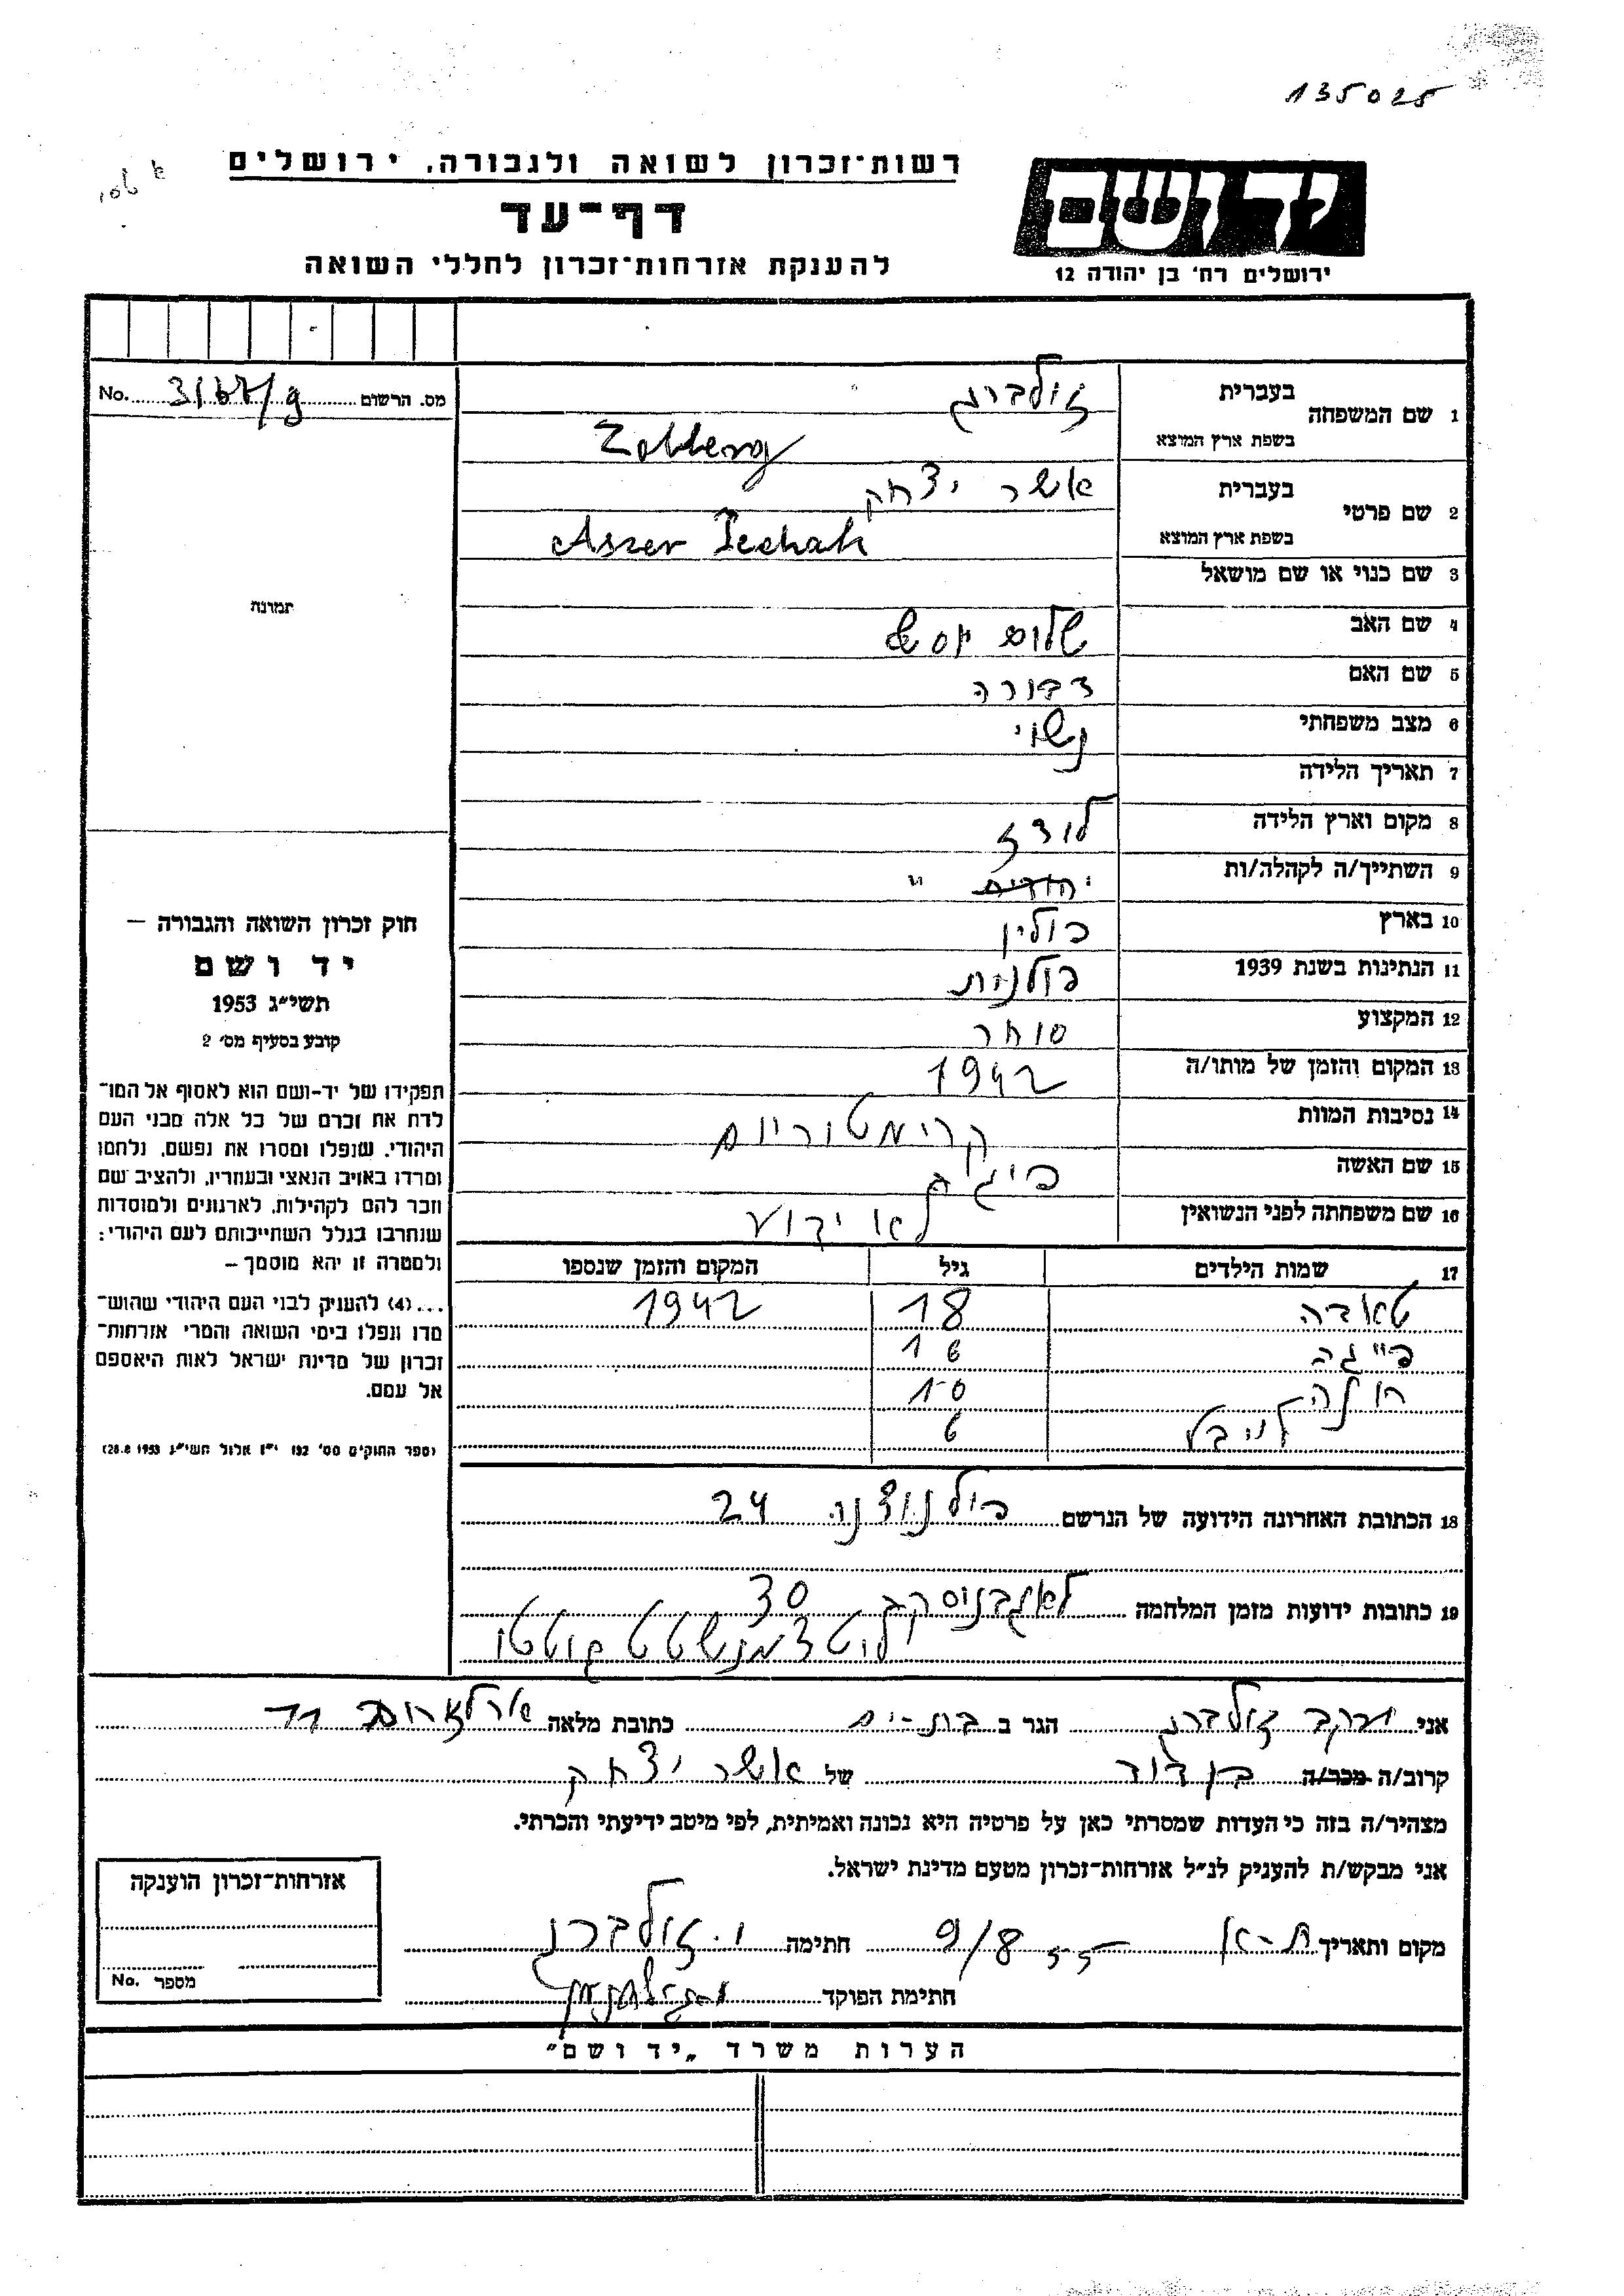 135025
רשות־זכרון לשואה ולגבורה, ירושלים
דף־עד
להענקת אזרחות־זכרון לחללי השואה
יד ושם
ירושלים רח' בן יהודה 12
מס. הרשום No.
1 שם המשפחה בעברית זולברג
בשפת ארץ המוצא Zolberg
2 שם פרטי בעברית אשר יצחק
בשפת ארץ המוצא Aszer Icchak
3 שם כנוי או שם מושאל
4 שם האב שלום
5 שם האם דבורה
6 מצב משפחתי נשוי
7 תאריך הלידה
8 מקום וארץ הלידה לודז
9 השתייך/ה לקהלה/ות יהודים "
10 בארץ פולין
11 הנתינות בשנת 1939 פולנית
12 המקצוע סוחר
13 המקום והזמן של מותו/ה 1942
14 נסיבות המוות קרימטוריום
15 שם האשה
16 שם משפחתה לפני הנשואין לא ידוע
17 שמות הילדים גיל המקום והזמן שנספו
טאודה 18 1942
פייגה 16
חנה 10
לייבל 6
18 הכתובת האחרונה הידועה של הנרשם 24
19 כתובות ידועות מזמן המלחמה 30
ליטצמנשטט גטטו
תמונה
חוק זכרון השואה והגבורה –
יד ושם
תשי"ג 1953
קובע בסעיף מס' 2
תפקידו של יד-ושם הוא לאסוף אל המו־
לדת את זכרם של כל אלה מבני העם
היהודי, שנפלו ומסרו את נפשם, נלחמו
ומרדו באויב הנאצי ובעוזריו, ולהציב שם
וזכר להם לקהילות, לארגונים ולמוסדות
שנחרבו בגלל השתייכותם לעם היהודי;
ולמטרה זו יהא מוסמך –
...(4) להעניק לבני העם היהודי שהוש־
מדו ונפלו בימי השואה והמרי אזרחות־
זכרון של מדינת ישראל לאות היאספם
אל עמם.
(ספר החוקים מס' 132 י"ז אלול תשי"ג 28.8.1953)
אני יעקב זולברג הגר ב בת-ים כתובת מלאה
קרוב/ה מכר/ה בן דוד של אשר יצחק
מצהיר/ה בזה כי העדות שמסרתי כאן על פרטיה היא נכונה ואמיתית, לפי מיטב ידיעתי והכרתי.
אני מבקש/ת להעניק לנ"ל אזרחות־זכרון מטעם מדינת ישראל.
מקום ותאריך ת-א 9/8 55 חתימה י. זולברג
חתימת הפוקד
אזרחות־זכרון הוענקה
מספר No.
הערות משרד „יד ושם"